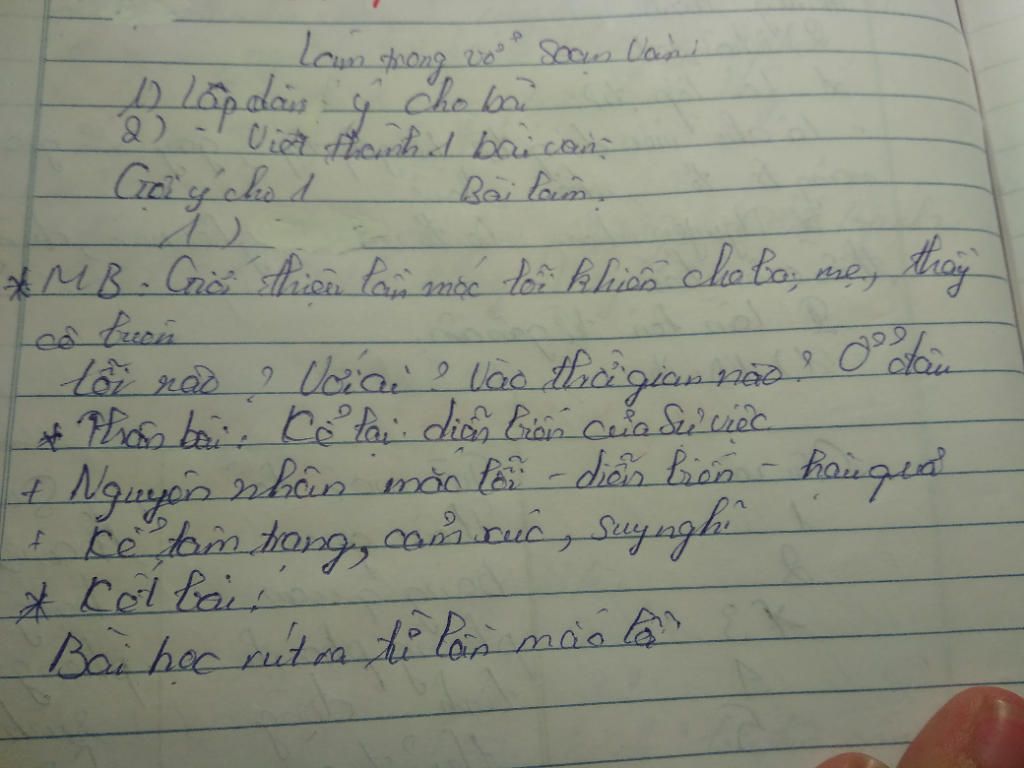 Làm trong vở soạn văn:
1) Lập dàn ý cho bài
2) - Viết thành 1 bài văn:
Gợi ý cho 1 Bài làm.
1)
* MB: Giới thiệu lần mắc lỗi khiến cho ba, mẹ, thầy
cô buồn
Lỗi nào? Với ai? Vào thời gian nào? Ở đâu
* Thân bài: Kể lại diễn biến của sự việc
+ Nguyên nhân mắc lỗi - diễn biến - hậu quả
+ Kể tâm trạng, cảm xúc, suy nghĩ
* Kết bài:
Bài học rút ra từ lần mắc lỗi